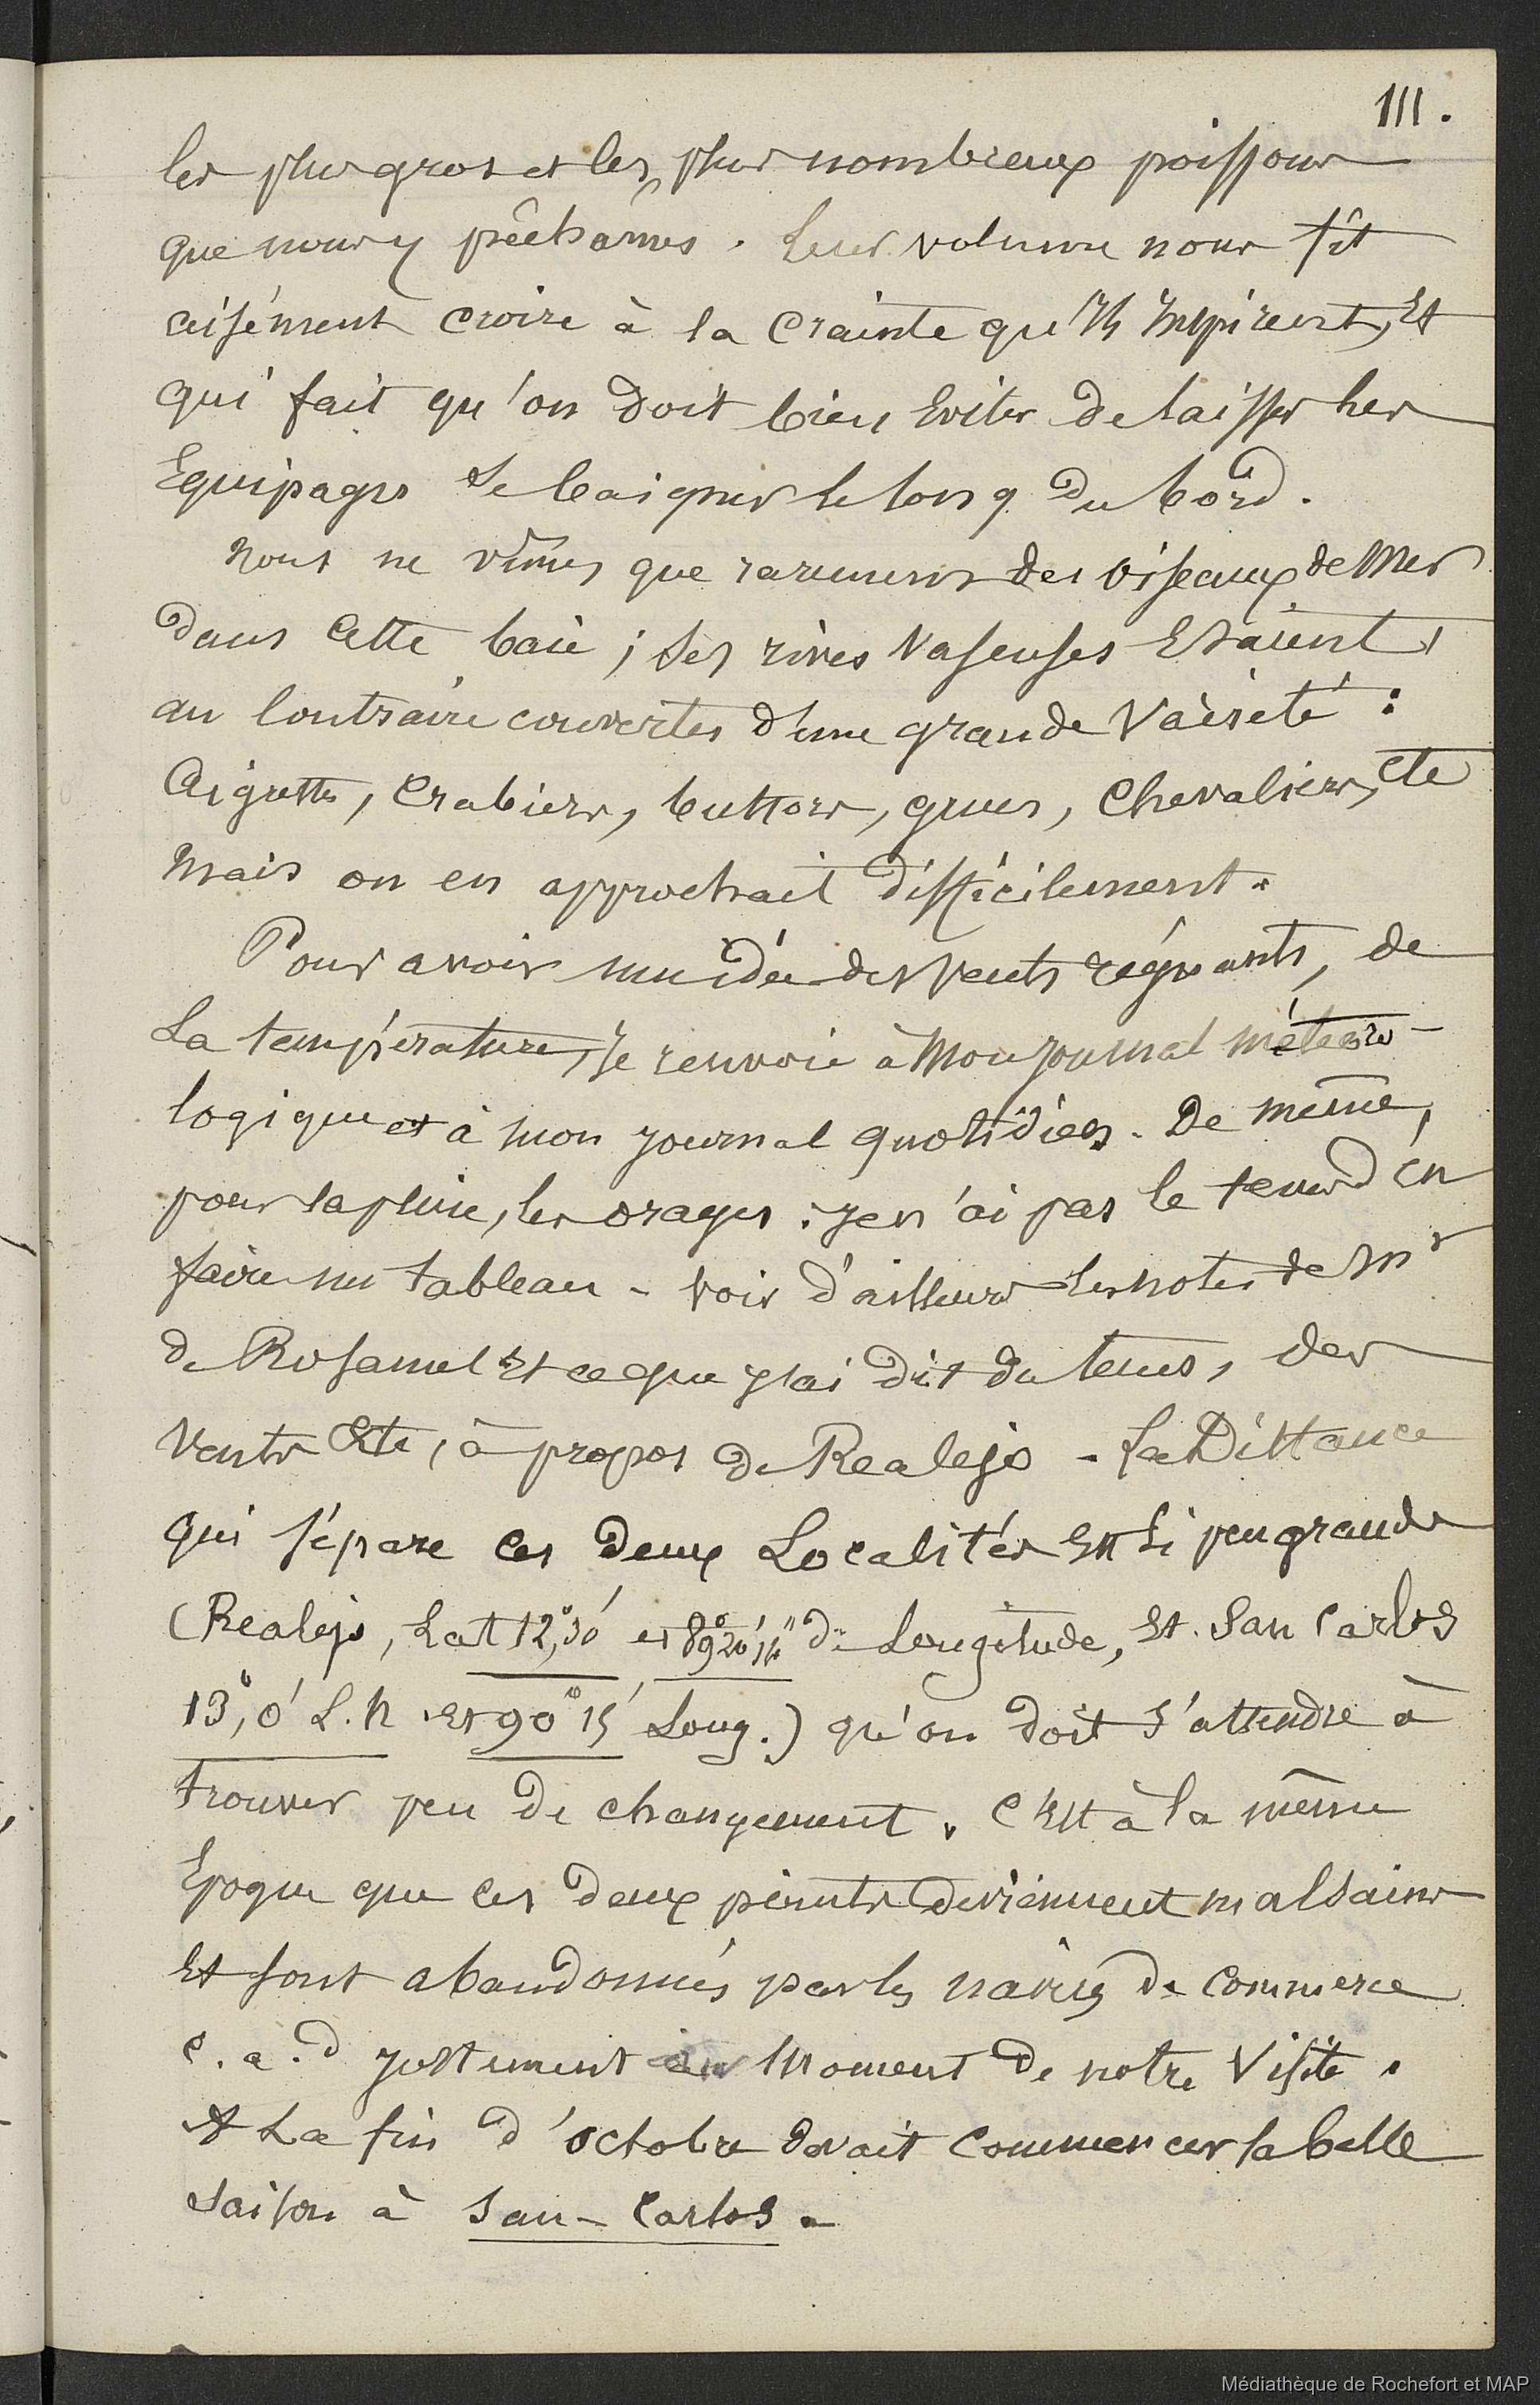 111.
les plus gros et les plus nombreux poissons
que nous y pêchâmes. Leur volume nous fit
aisément croire à la crainte qu'ils inspirent, Et
qui fait qu'on doit bien Eviter de laisser les
Equipages se baigner le long du bord.
Nous ne vîmes que rarement des oiseaux de Mer
dans cette baie ; ses rives vaseuses Etaient,
au contraire couvertes d'une grande Variété :
Aigrettes, Crabiers, buttors, grues, Chevaliers, etc
mais on en approchait difficilement.
Pour avoir une idée des vents régnants, de
La température, Je renvoie à Mon Journal météoro-
logique et à mon journal quotidien. De même,
pour la pluie, les orages : je n'ai pas le tems d'en
faire un tableau - voir d'ailleurs les notes de Mr
de Rosamel Et ce que j'ai dit du tems, des
Vents Etc, à propos de Realejo - La Distance
qui sépare ces deux Localités Est si peu grande
(Realejo, Lat 12°,30' et 89°20'14" de Longitude, Et San Carlos
13°,0' L. N. et 90° 15' Long.) qu'on doit s'attendre à
trouver peu de changement. C'Est à la même
Epoque que ces deux points deviennent malsains
Et sont abandonnés par les navires de Commerce
c. a. d justement au Moment de notre Visite.
A La fin d'octobre devait commencer la belle
saison à San-Carlos.
Médiathèque de Rochefort et MAP